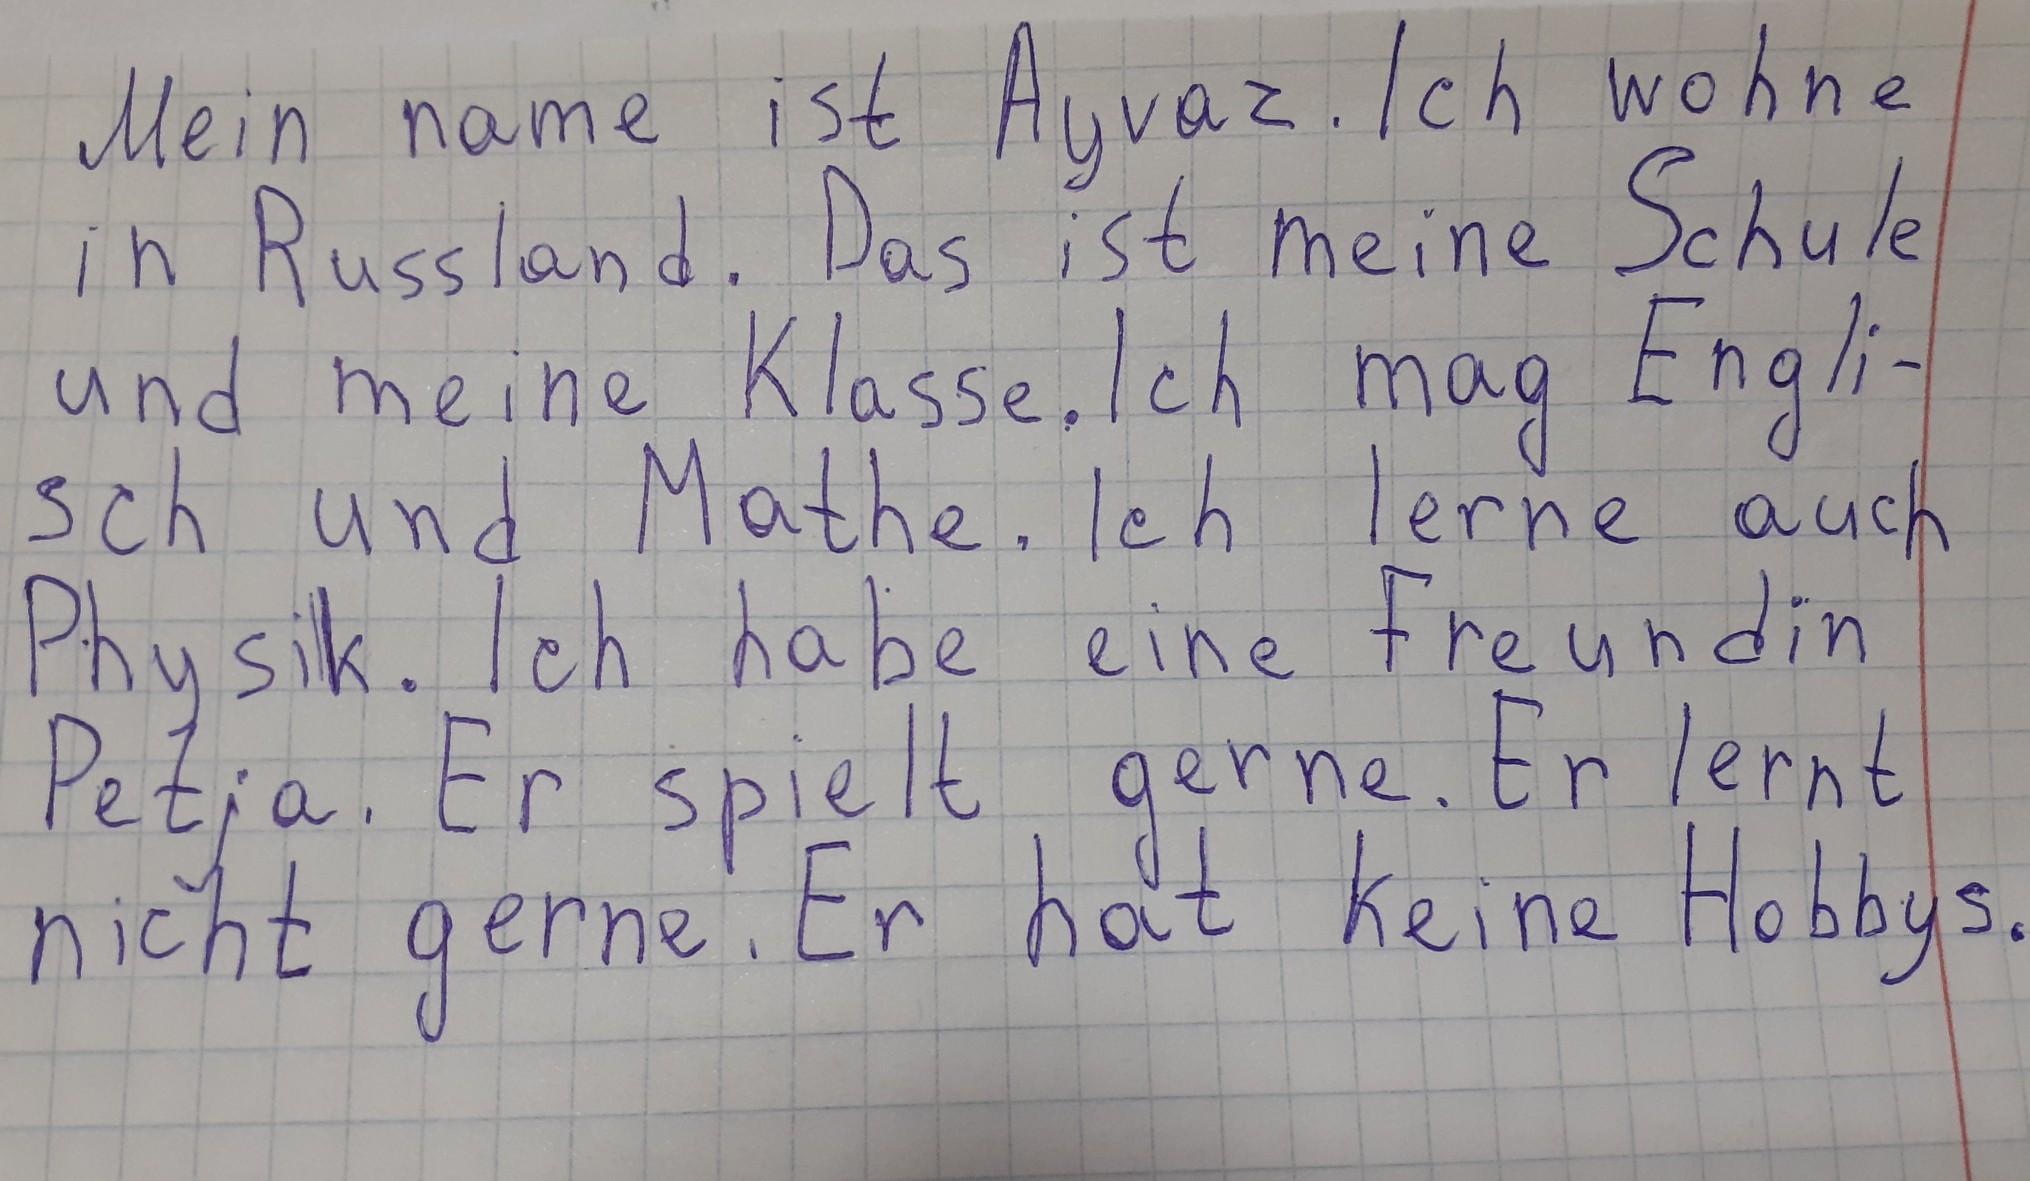 Mein name ist Ayvaz. Ich wohne
in Russland. Das ist meine Schule
und meine Klasse. Ich mag Engli-
sch und Mathe. Ich lerne auch
Physik. Ich habe eine Freundin
Petja. Er spielt gerne. Er lernt
nicht gerne. Er hat keine Hobbys.